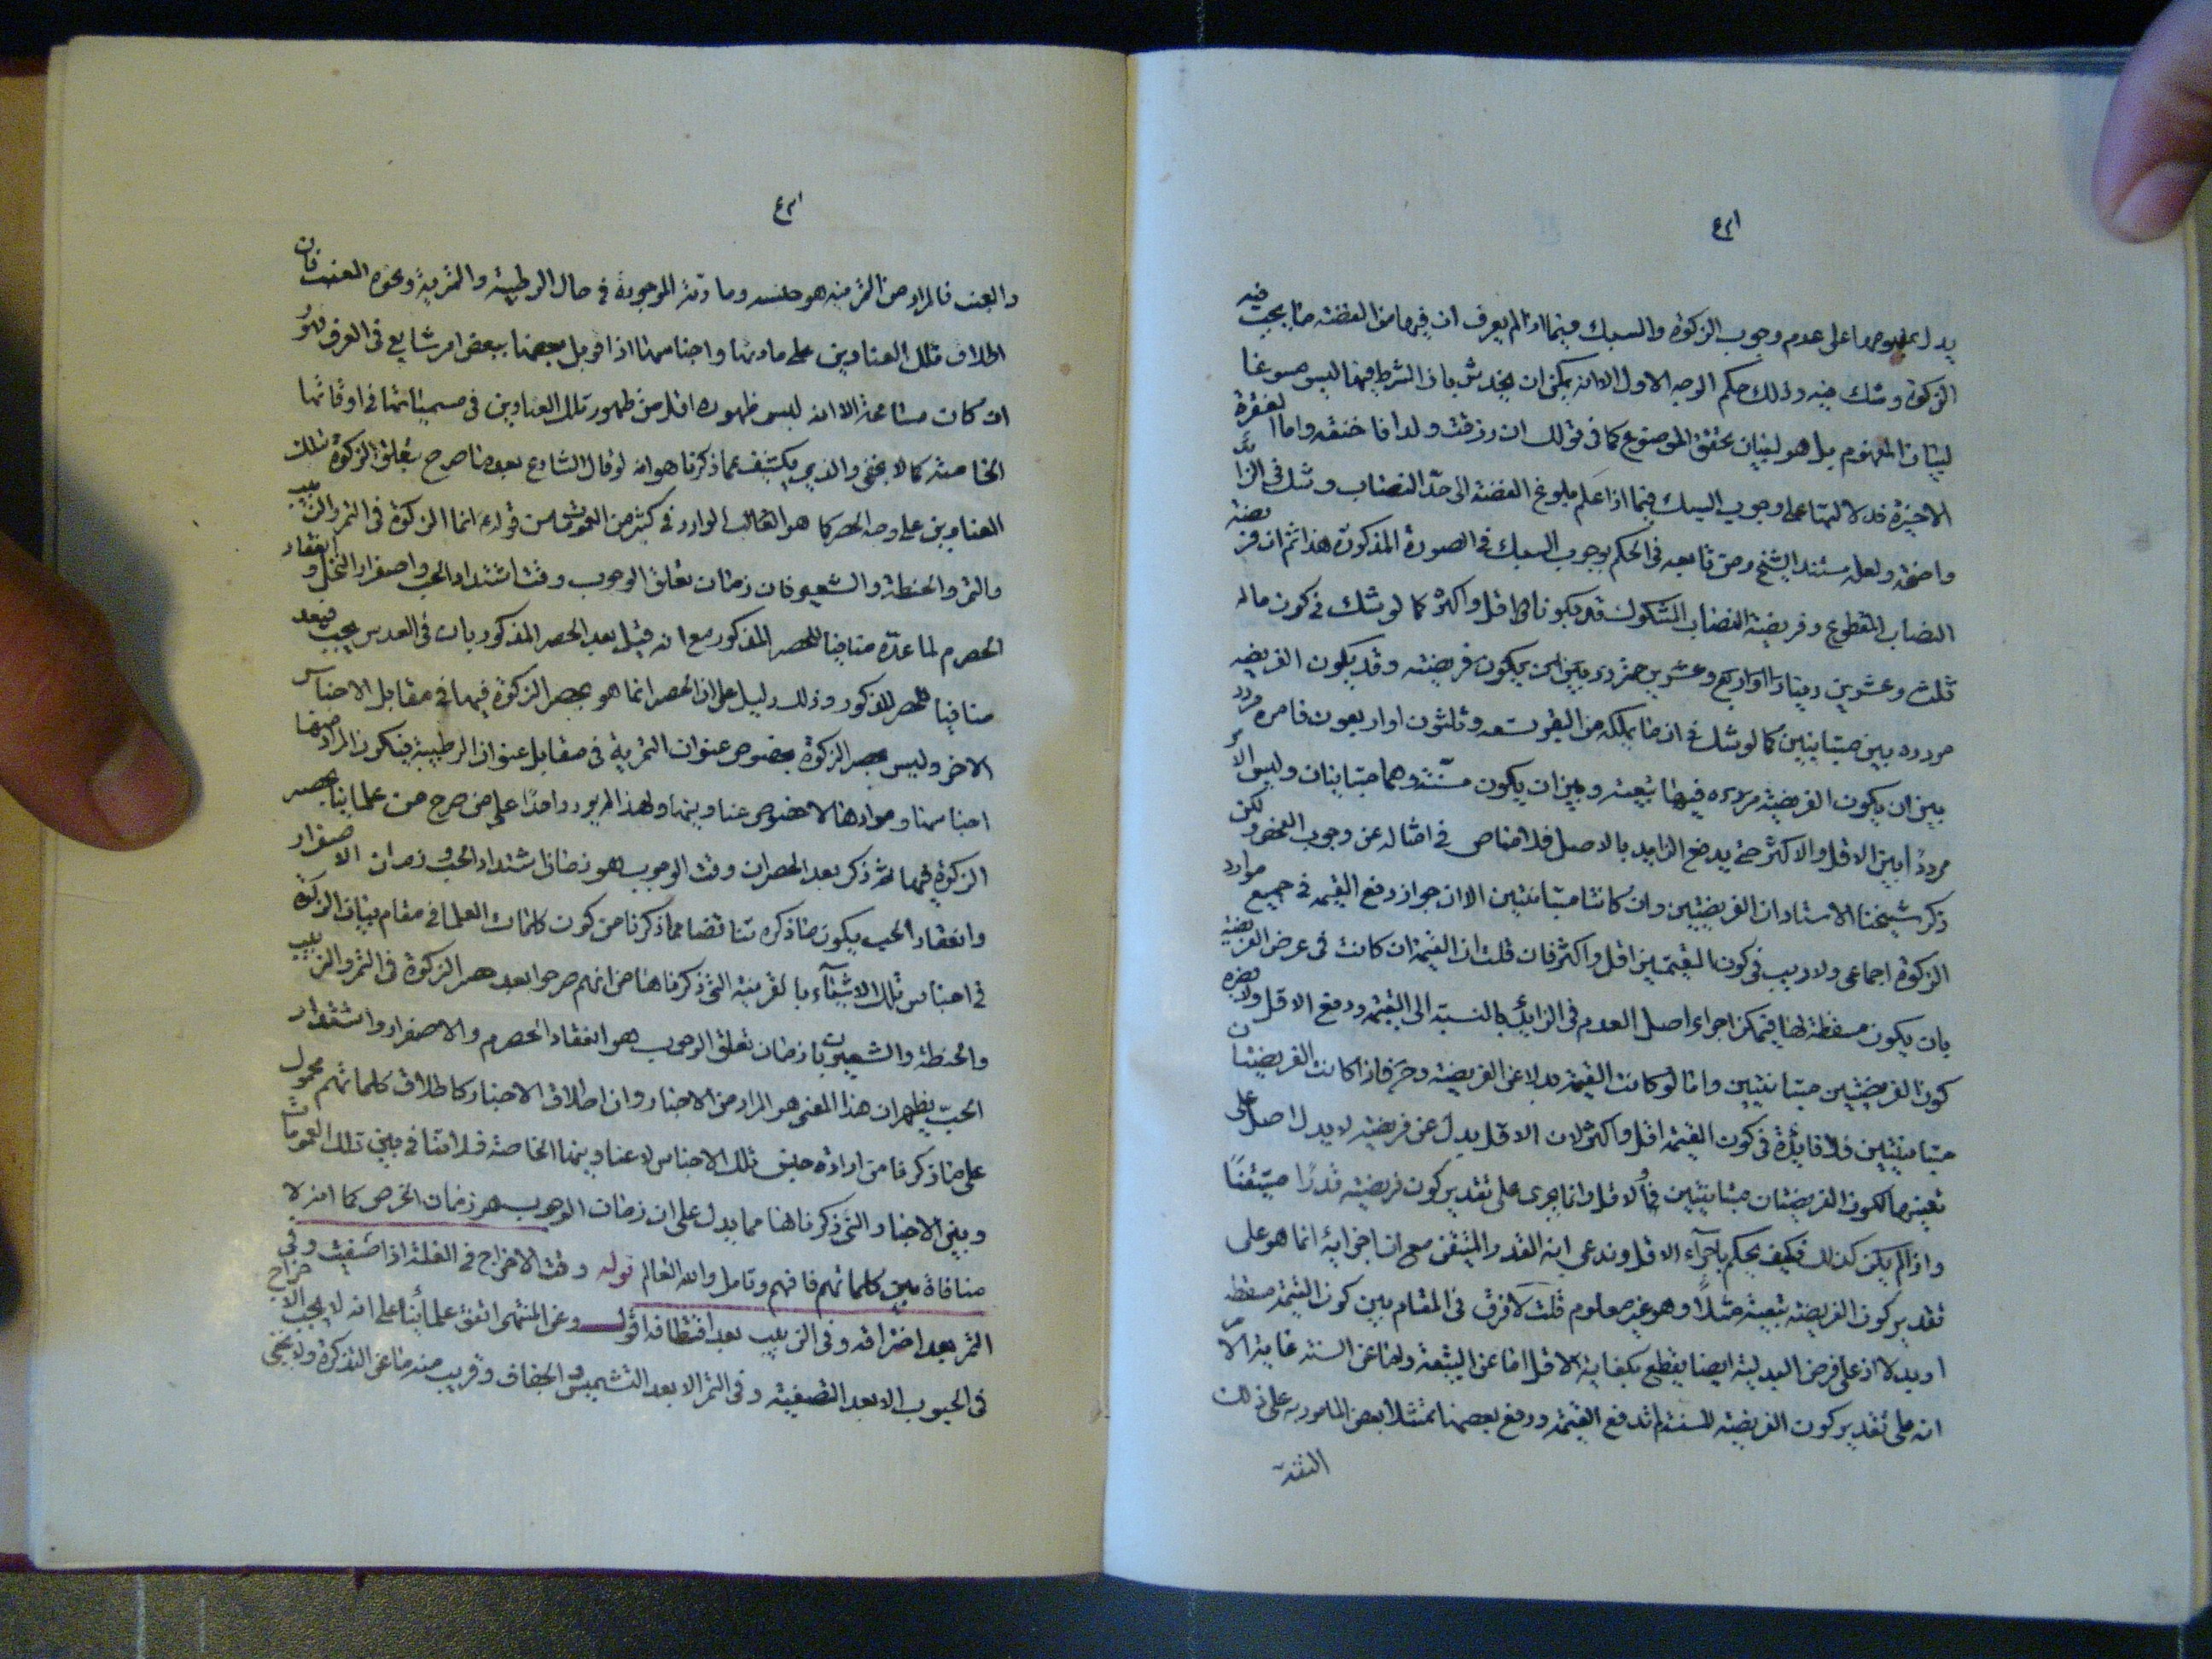 يدل بمفهومها على عدم وجوب الزكوة والسبك فيما اذا لم يعرف ان فيها من الفضة ما يجب فيه
الزكوة وشك فيه وذلك حكم الوجه الاول الا انه يمكن ان يخدش بان الشرط فيها ليس مسوغا
لبيان المفهوم بل هو لبيان تحقق الموضوع كما في قولك ان رزقت ولدا فاختنه واما الفقرة
الاخيرة فدلالتها على وجوب السبك فيما اذا علم بلوغ الفضة الى حد النصاب وشك في الزائد
واضحة ولعله مستند الشيخ ومن تابعه في الحكم بوجوب السبك في الصورة المذكورة هذا ثم ان فريضة
النصاب المقطوع وفريضة النصاب المشكوك قد يكونان اقل واكثر كما لو شك في كون ماله
ثلث وعشرين دينارا او اربع وعشرين فتردد بين ان يكون فريضته وقد يكون الفريضة مردد
مردده بين متباينين كما لو شك في ان ما يملكه من البقر تسعه وثلثون او اربعون فامره مردد
بين ان يكون الفريضة مردده فيها تبيعة وبين ان يكون مسنة وهما متباينان وليس الامر
مرددا بين الاقل والاكثر حتى يدفع الزايد بالاصل فلا مناص في امثاله عن وجوب الفحص ولكن
ذكر شيخنا الاستاد ان الفريضتين وان كانتا متباينتين الا ان جواز دفع القيمه في جميع موارد
الزكوة اجماعى ولا ريب في كون القيمتين اقل واكثر فان قلت ان القيمة ان كانت في عرض الفريضة
بان يكون مسقطة لها فيمكن اجراء اصل العدم في الزايد بالنسبة الى القيمة ودفع الاقل ولا يضره
كون الفريضتين متباينتين واما لو كانت القيمة بدلا عن الفريضة وح فاذا كانت الفريضتان
متباينتين فلا فايدة في كون القيمة اقل واكثر لان الاقل بدل عن فريضة لا يدل اصل على
تعينها لكون الفريضتان متباينتين فالاقل انما يجرى على تقدير كون فريضته قدرا متيقنا
واذا لم يكن كذلك فكيف يحكم باجراء الاقل وندعى انه القدر المتيقن مع ان اجرائه انما هو على
تقدير كون الفريضة تبيعة مثلا وهو غير معلوم قلت لا فرق في المقام بين كون القيمة مسقطه
او بدلا اذ على فرض البدلية ايضا يقطع بكفاية الاقل اما عن التبيعة واما عن المسنة غاية الامر
انه على تقدير كون الفريضة المسنة لم تدفع القيمة ودفع بعضها امتثلا بعض المامور به على ذلك
التقدير
والعنب فالمراد من التمر منه هو جنسه ومادته الموجودة في حال الرطبية والتمرية ونحوه العنب فان
اطلاق تلك العناوين على مادتها واجناسها اذا قوبل بعضها ببعض امر شايع في العرف فهو
ان كان مسامحة الا انه ليس ظهوره اقل من ظهور تلك العناوين في مسمياتها في اوقاتها
الخاصة كما لا يخفى والذي يكشف عما ذكرنا هو انه لو قال الشارع بعد ما صرح بتعلق الزكوة بتلك
العناوين على وجه الحصر كما هو الغالب الوارد في كثير من النصوص من قوله انما الزكوة في التمر والزبيب
والتمر والحنطة والشعير فان زمان تعلق الوجوب وقت اشتداد الحب واصفرار النخل وانعقاد
الحصرم لما عده منافيا للحصر المذكور مع انه قيل بعد الحصر المذكور بان في العدس يجب فيعد
منافيا للحصر المذكور وذلك دليل على ان الحصر انما هو يحصر الزكوة فيها في مقابل الاجناس
الاخر وليس بحصر الزكوة بخصوص عنوان التمرية في مقابل عنوان الرطبية فيكون المراد منها
اجناسها وموادها لا خصوص عناوينها ولهذا لم يورد احدا على من صرح من علمائنا بحصر
الزكوة فيها ثم ذكر بعد الحصر ان وقت الوجوب هو زمان اشتداد الحب وزمان الاصفرار
وانعقاد الحب يكون ما ذكره تناقضا مما ذكرنا من كون كلمات العلما في مقام بيان الزكوة
في اجناس تلك الاشياء بالقرينة التي ذكرناها من انهم صرحوا بعد حصر الزكوة في التمر والزبيب
والحنطة والشعير بان زمان تعلق الوجوب هو انعقاد الحصرم والاصفرار واشتداد
الحب يظهر ان هذا المعنى هو المراد من الاخبار وان اطلاق الاخبار كاطلاق كلماتهم محمول
على ما ذكرنا من ارادة جنس تلك الاجناس لا عناوينها الخاصة فلا تنافي بين تلك العمومات
وبين الاخبار التي ذكرناها مما يدل على ان زمان الوجوب هو زمان الخرص كما انه لا
منافاة بين كلماتهم فافهم وتامل والله العالم قوله وقت الاخراج في الغلة اذا صفيت وفي
التمر بعد اخترافه وفي الزبيب بعد اقتطافه اقول وعن المنتهى اتفق علمائنا على انه لا يجب الاخراج
في الحبوب الا بعد التصفية وفي التمر الا بعد التشميس والجفاف وقريب منه ما عن التذكرة ولا يخفى